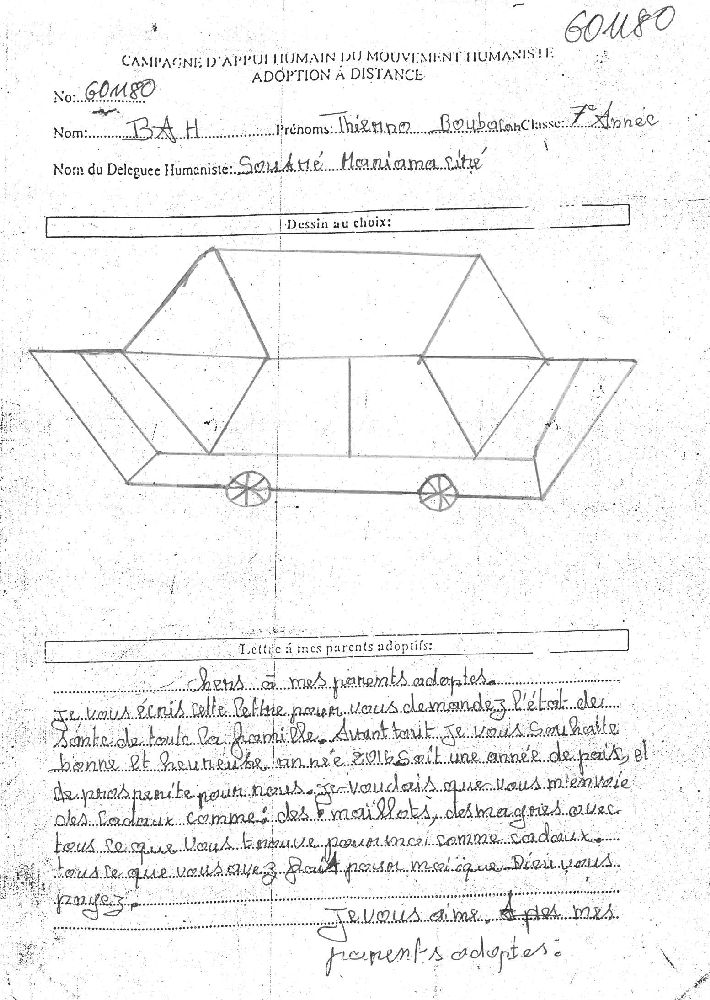 601180
CAMPAGNE D'APPUI HUMAIN DU MOUVEMENT HUMANISTE
ADOPTION À DISTANCE
No: 601180
Nom: BAH Prénoms: Thierno Boubacar Classe: 7e Année
Nom du Deleguee Humaniste: Soumré Mariama Ciré
Dessin au choix:
Lettre à mes parents adoptifs:
chers à mes parents adoptes.
Je vous écris cette lettre pour vous demandez l'état de
sante de toute la framille. Avant tout je vous souhaite
bonne et heureuse année 2016 Soit une année de paix, et
de prosperite pour nous. je voudais que vous m'envoie
des cadaux comme: des maillots, des magnes avec
tous ce que vous trouve pour moi comme cadaux.
tous ce que vous avez fait pour moi que Dieu vous
payez.
Je vous aime. mes
parents adoptes.